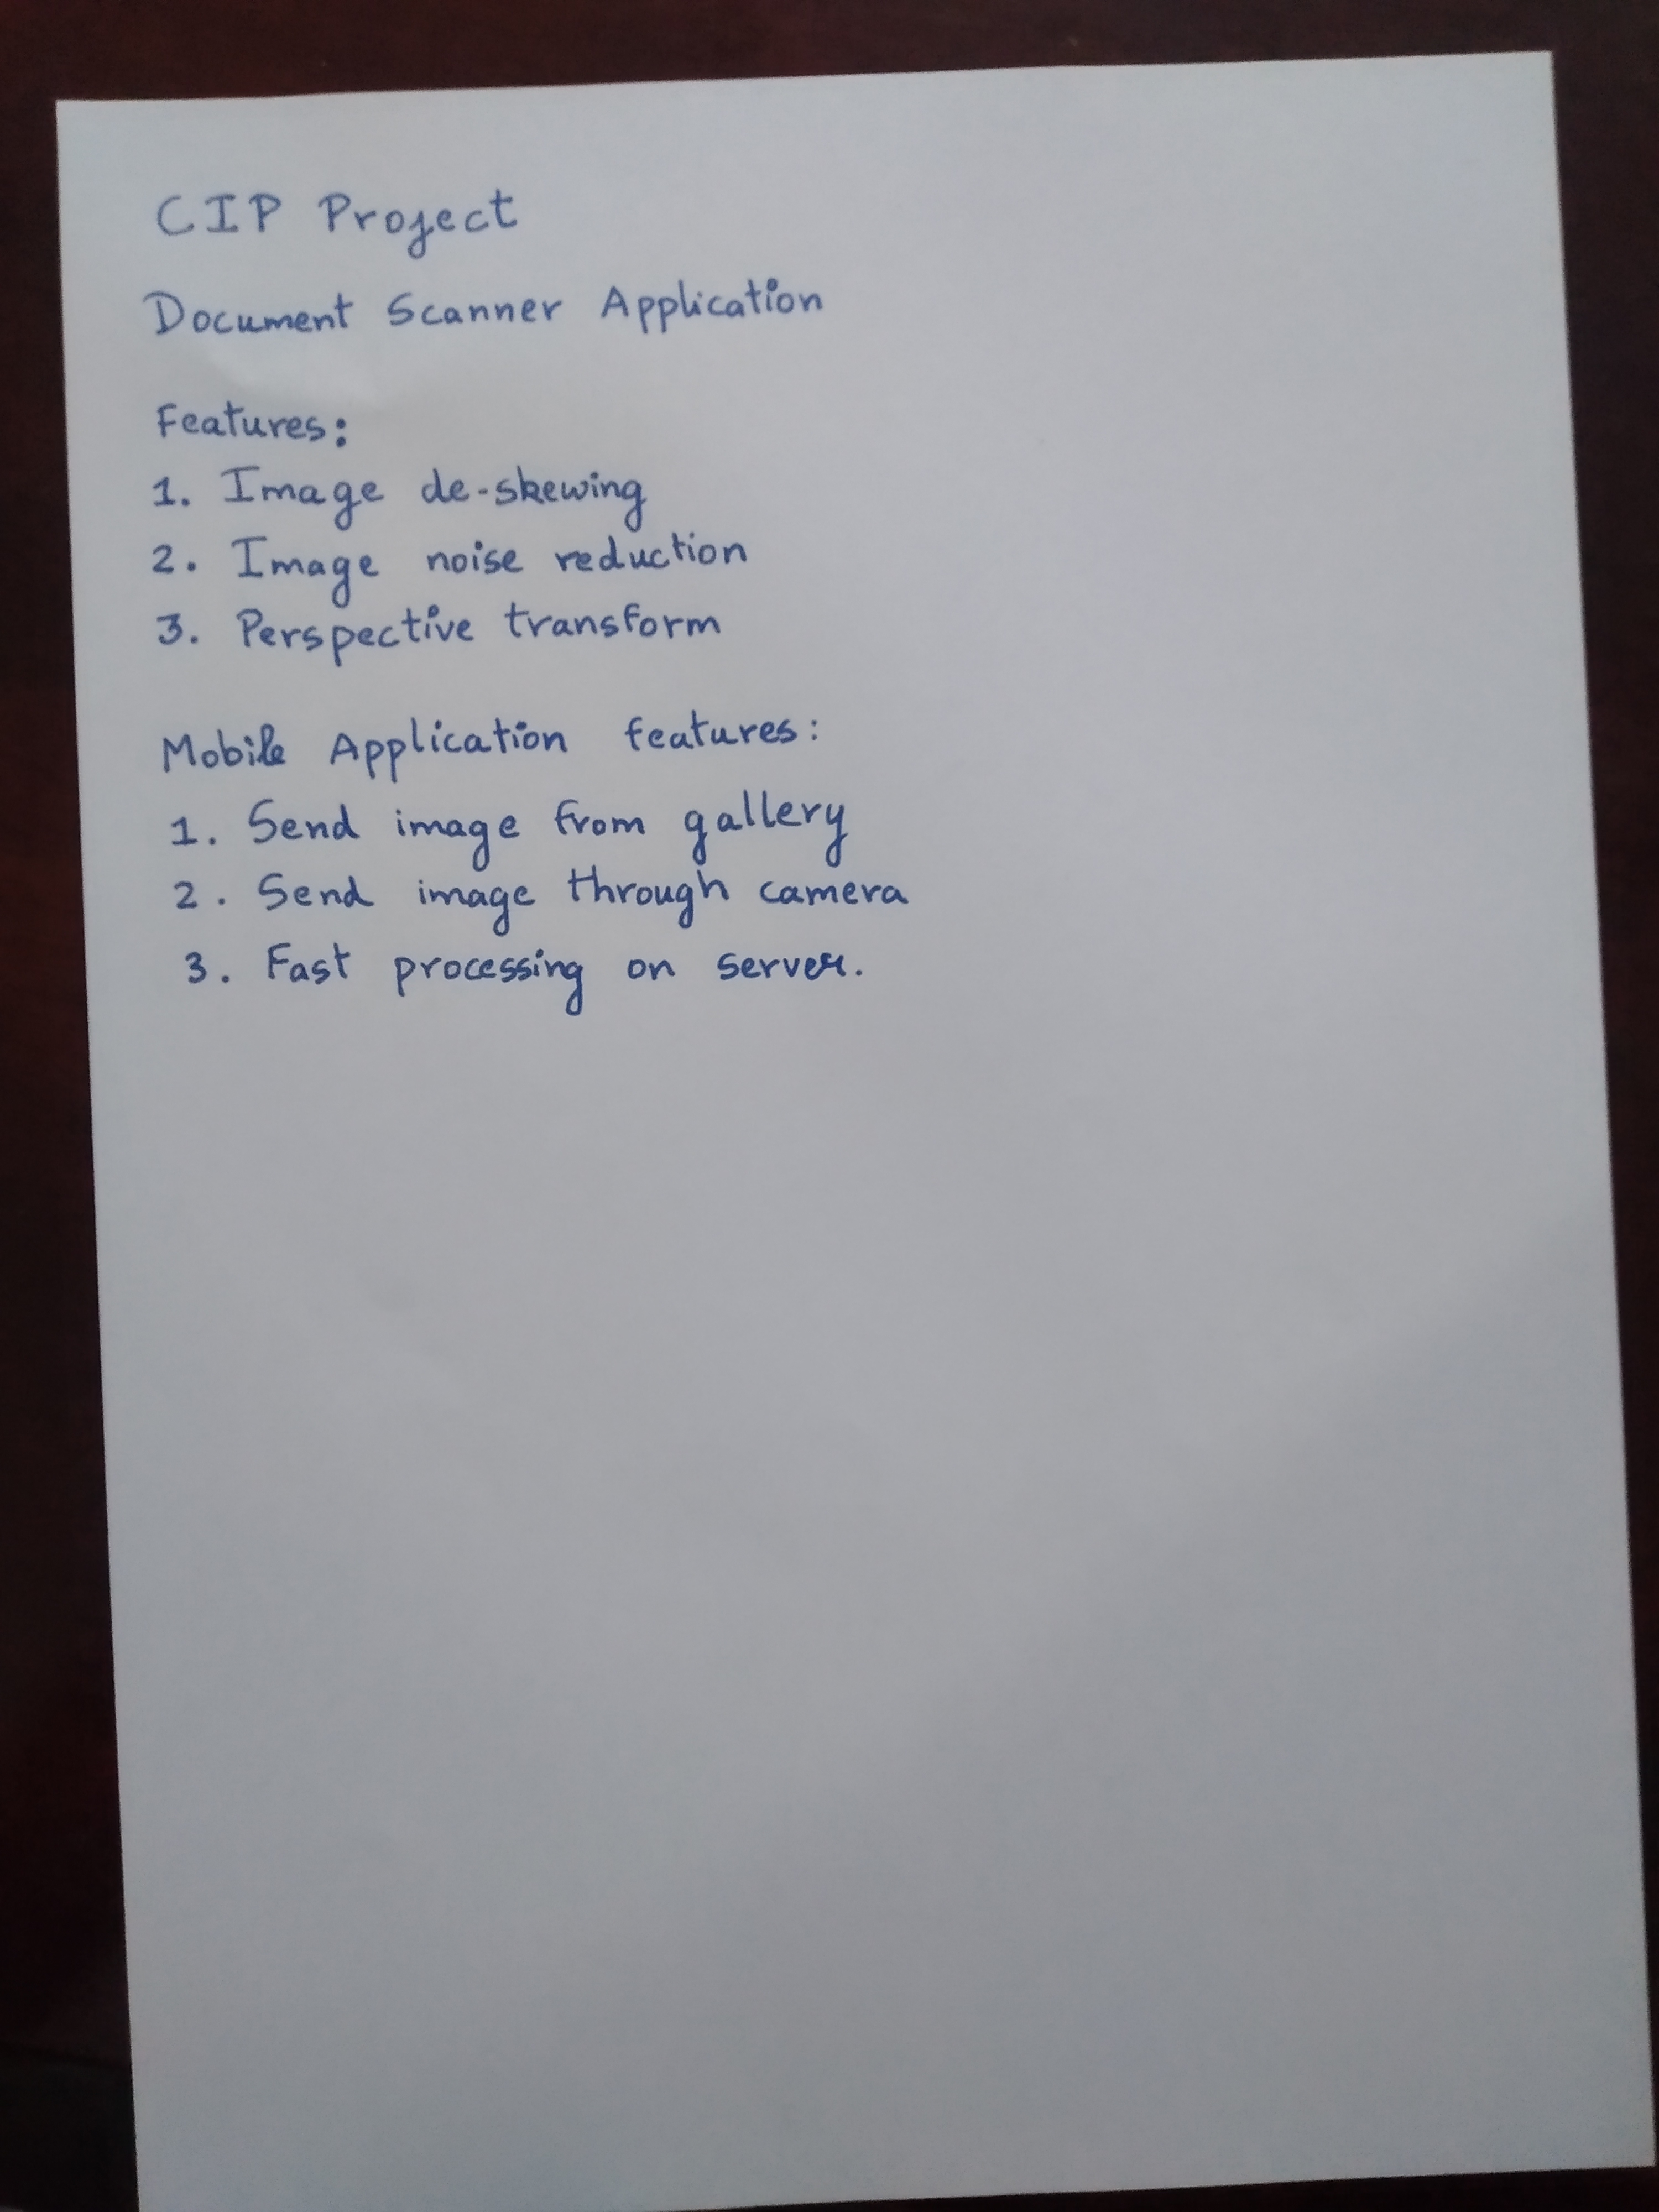 CIP Project
Document Scanner Application
Features:
1. Image de-skewing
2. Image noise reduction
3. Perspective transform
Mobile Application features:
1. Send image from gallery
2. Send image through camera
3. Fast processing on server.